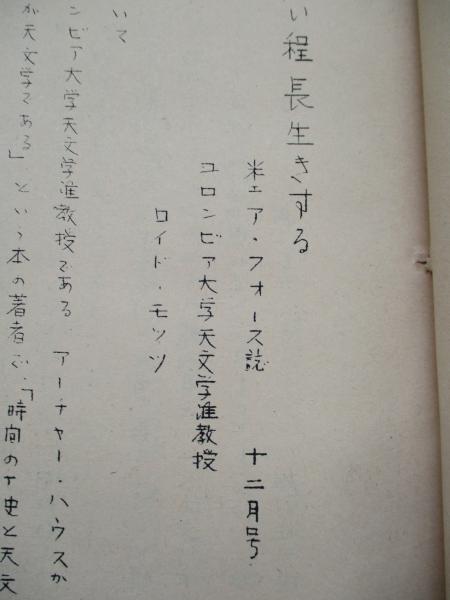 い程長生きする
米エア・フォース誌 十二月号
コロンビア大学天文学准教授
ロイド・モッツ
いて
ンビア大学天文学准教授である。アーチャー・ハウスか
が天文学である」という本の著者で、「時間の十史と天文